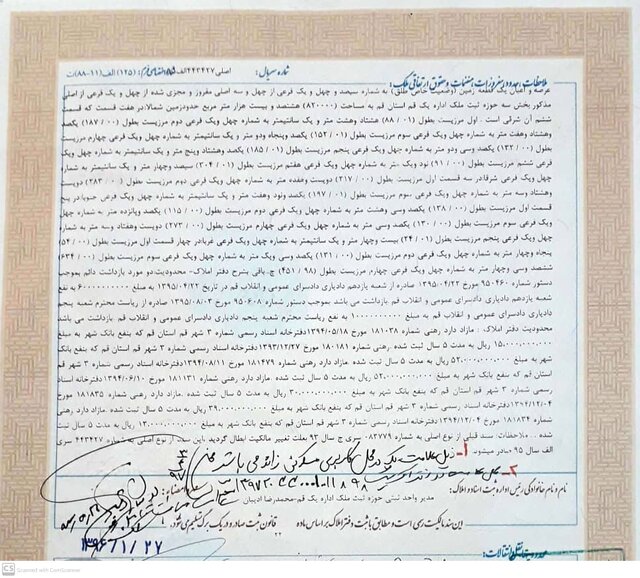 ملاحظات، حدود و مفروزات، منضمات و حقوق ارتفاقی ملک: شماره سریال: اصلی ۴۴۳۴۲۷ الف (۱۲۵) الف (۱۱-۸۸) ت
عرصه و اعیان یک قطعه زمین (وضعیت خاص طلق) به شماره سیصد و چهل و یک فرعی از چهل و سه اصلی مفروز و مجزی شده از چهل و یک فرعی از اصلی
مذکور بخش سه حوزه ثبت ملک اداره یک قم استان قم به مساحت (۸۲۰۰۰۰) هشتصد و بیست هزار متر مربع حدودزمین شمالا:در هفت قسمت که قسمت
ششم آن شرقی است . اول مرزیست بطول (۰۱ / ۸۸) هشتاد وهشت متر و یک سانتیمتر به شماره چهل ویک فرعی دوم مرزیست بطول (۰۰ / ۱۸۷) یکصد
وهشتاد وهفت متر به شماره چهل ویک فرعی سوم مرزیست بطول (۰۱ / ۱۵۲) یکصد وپنجاه ودو متر و یک سانتیمتر به شماره چهل ویک فرعی چهارم مرزیست
بطول (۰۰ / ۱۳۲) یکصد وسی ودو متر به شماره چهل ویک فرعی پنجم مرزیست بطول (۰۱ / ۱۸۵) یکصد وهشتاد وپنج متر و یک سانتیمتر به شماره چهل ویک
فرعی ششم مرزیست بطول (۰۰ / ۹۱) نود ویک متر به شماره چهل ویک فرعی هفتم مرزیست بطول (۰۱ / ۳۰۴) سیصد وچهار متر و یک سانتیمتر به شماره
چهل ویک فرعی شرقا:در سه قسمت اول مرزیست بطول (۰۰ / ۲۱۷) دویست وهفده متر به شماره چهل ویک فرعی دوم مرزیست بطول (۰۰ / ۲۸۳) دویست
وهشتاد وسه متر به شماره چهل ویک فرعی سوم مرزیست بطول (۰۱ / ۱۹۷) یکصد ونود وهفت متر و یک سانتیمتر به شماره چهل ویک فرعی جنوبا:در پنج
قسمت اول مرزیست بطول (۰۰ / ۱۳۸) یکصد وسی وهشت متر به شماره چهل ویک فرعی دوم مرزیست بطول (۰۰ / ۱۱۵) یکصد وپانزده متر به شماره چهل
ویک فرعی سوم مرزیست بطول (۰۰ / ۱۳۰) یکصد وسی متر به شماره چهل ویک فرعی چهارم مرزیست بطول (۰۰ / ۲۷۳) دویست وهفتاد وسه متر به شماره
چهل ویک فرعی پنجم مرزیست بطول (۰۱ / ۲۴) بیست وچهار متر و یک سانتیمتر به شماره چهل ویک فرعی غربا:در چهار قسمت اول مرزیست بطول (۰۰ / ۵۴)
پنجاه وچهار متر به شماره چهل ویک فرعی دوم مرزیست بطول (۰۰ / ۱۳۱) یکصد وسی ویک متر به شماره چهل ویک فرعی سوم مرزیست بطول (۰۰ / ۶۳۴)
ششصد وسی وچهار متر به شماره چهل ویک فرعی چهارم مرزیست بطول (۹۸ / ۴۵۱) باقی بشرح دفتر املاک- محدودیت:دو مورد بازداشت دائم بموجب
دستور شماره ۹۵۰۴۶۰ مورخ ۱۳۹۵/۰۴/۲۲ صادره از شعبه یازدهم دادیاری دادسرای عمومی و انقلاب قم در تاریخ ۱۳۹۵/۰۴/۲۲ به مبلغ ۶۰۰۰۰۰۰۰۰۰ به نفع
شعبه یازدهم دادیاری دادسرای عمومی و انقلاب قم بازداشت می باشد بموجب دستور شماره ۹۵۰۶۰۸ مورخ ۱۳۹۵/۰۸/۰۳ صادره از ریاست محترم شعبه پنجم
دادیاری دادسرای عمومی و انقلاب قم به مبلغ ۱۰۰۰۰۰۰۰۰۰ به نفع ریاست محترم شعبه پنجم دادیاری دادسرای عمومی و انقلاب قم بازداشت می باشد
محدودیت دفتر املاک : مازاد دارد رهنی شماره ۱۸۱۰۳۸ مورخ ۱۳۹۴/۰۵/۱۸دفترخانه اسناد رسمی شماره ۳ شهر قم استان قم که بنفع بانک شهر به مبلغ
۱۵,۰۰۰,۰۰۰,۰۰۰ ریال به مدت ۵ سال ثبت شده .رهنی شماره ۱۸۰۱۸۱ مورخ ۱۳۹۳/۱۲/۲۷دفترخانه اسناد رسمی شماره ۳ شهر قم استان قم که بنفع بانک
شهر به مبلغ ۵۲,۰۰۰,۰۰۰,۰۰۰ ریال به مدت ۵ سال ثبت شده .مازاد دارد رهنی شماره ۱۸۱۴۷۹ مورخ ۱۳۹۴/۰۸/۱۱دفترخانه اسناد رسمی شماره ۳ شهر قم
استان قم که بنفع بانک شهر به مبلغ ۵۲,۰۰۰,۰۰۰,۰۰۰ ریال به مدت ۵ سال ثبت شده .مازاد دارد رهنی شماره ۱۸۱۱۳۱ مورخ ۱۳۹۴/۰۶/۱۰دفترخانه اسناد
رسمی شماره ۳ شهر قم استان قم که بنفع بانک شهر به مبلغ ۳۰,۰۰۰,۰۰۰,۰۰۰ ریال به مدت ۵ سال ثبت شده .مازاد دارد رهنی شماره ۱۸۱۸۳۵ مورخ
۱۳۹۴/۱۲/۰۴دفترخانه اسناد رسمی شماره ۳ شهر قم استان قم که بنفع بانک شهر به مبلغ ۳۹,۰۰۰,۰۰۰,۰۰۰ ریال به مدت ۵ سال ثبت شده .مازاد دارد رهنی
شماره ۱۸۱۸۳۴ مورخ ۱۳۹۴/۱۲/۰۴دفترخانه اسناد رسمی شماره ۳ شهر قم استان قم که بنفع بانک شهر به مبلغ ۱۳,۰۰۰,۰۰۰,۰۰۰ ریال به مدت ۵ سال ثبت
شده . ملاحظات: سند قبلی از نوع اصلی به شماره ۰۸۳۷۷۹ سری ج سال ۹۳ بعلت تغییر مالکیت ابطال گردید .این سند از نوع اصلی به شماره ۴۴۳۴۲۷ سری
الف سال ۹۵ صادر میشود.
۱- ذیل علامت یک در محل کاربری مسکونی زائد می باشد
۲-
نام و نام خانوادگی رئیس اداره ثبت اسناد و املاک: محل مهر و امضاء:
مدیر واحد ثبتی حوزه ثبت ملک اداره یک قم-محمدرضا ادیبان
این سند مالکیت رسمی است و مطابق با ثبت دفتر املاک بر اساس ماده ۲۲ قانون ثبت صادر و در یک برگ تسلیم می شود.
۱۳۹۶/۱/۲۷
محدودیت: نقل و انتقالات:
CS Scanned with CamScanner